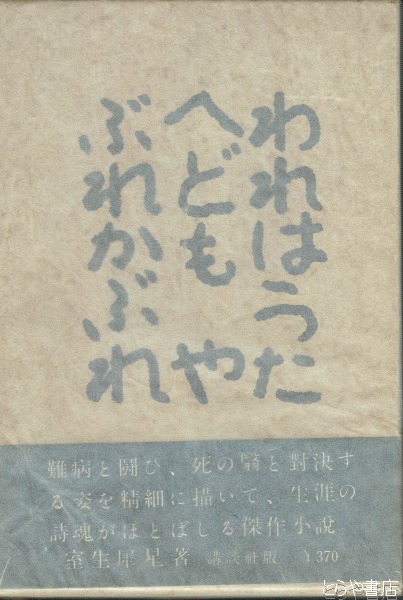 われはうた
へども や
ぶれかぶれ
難病と闘ひ、死の翳と對決す
る姿を精細に描いて、生涯の
詩魂がほとばしる傑作小説
室生犀星著 講談社版 ¥370
とらや書店